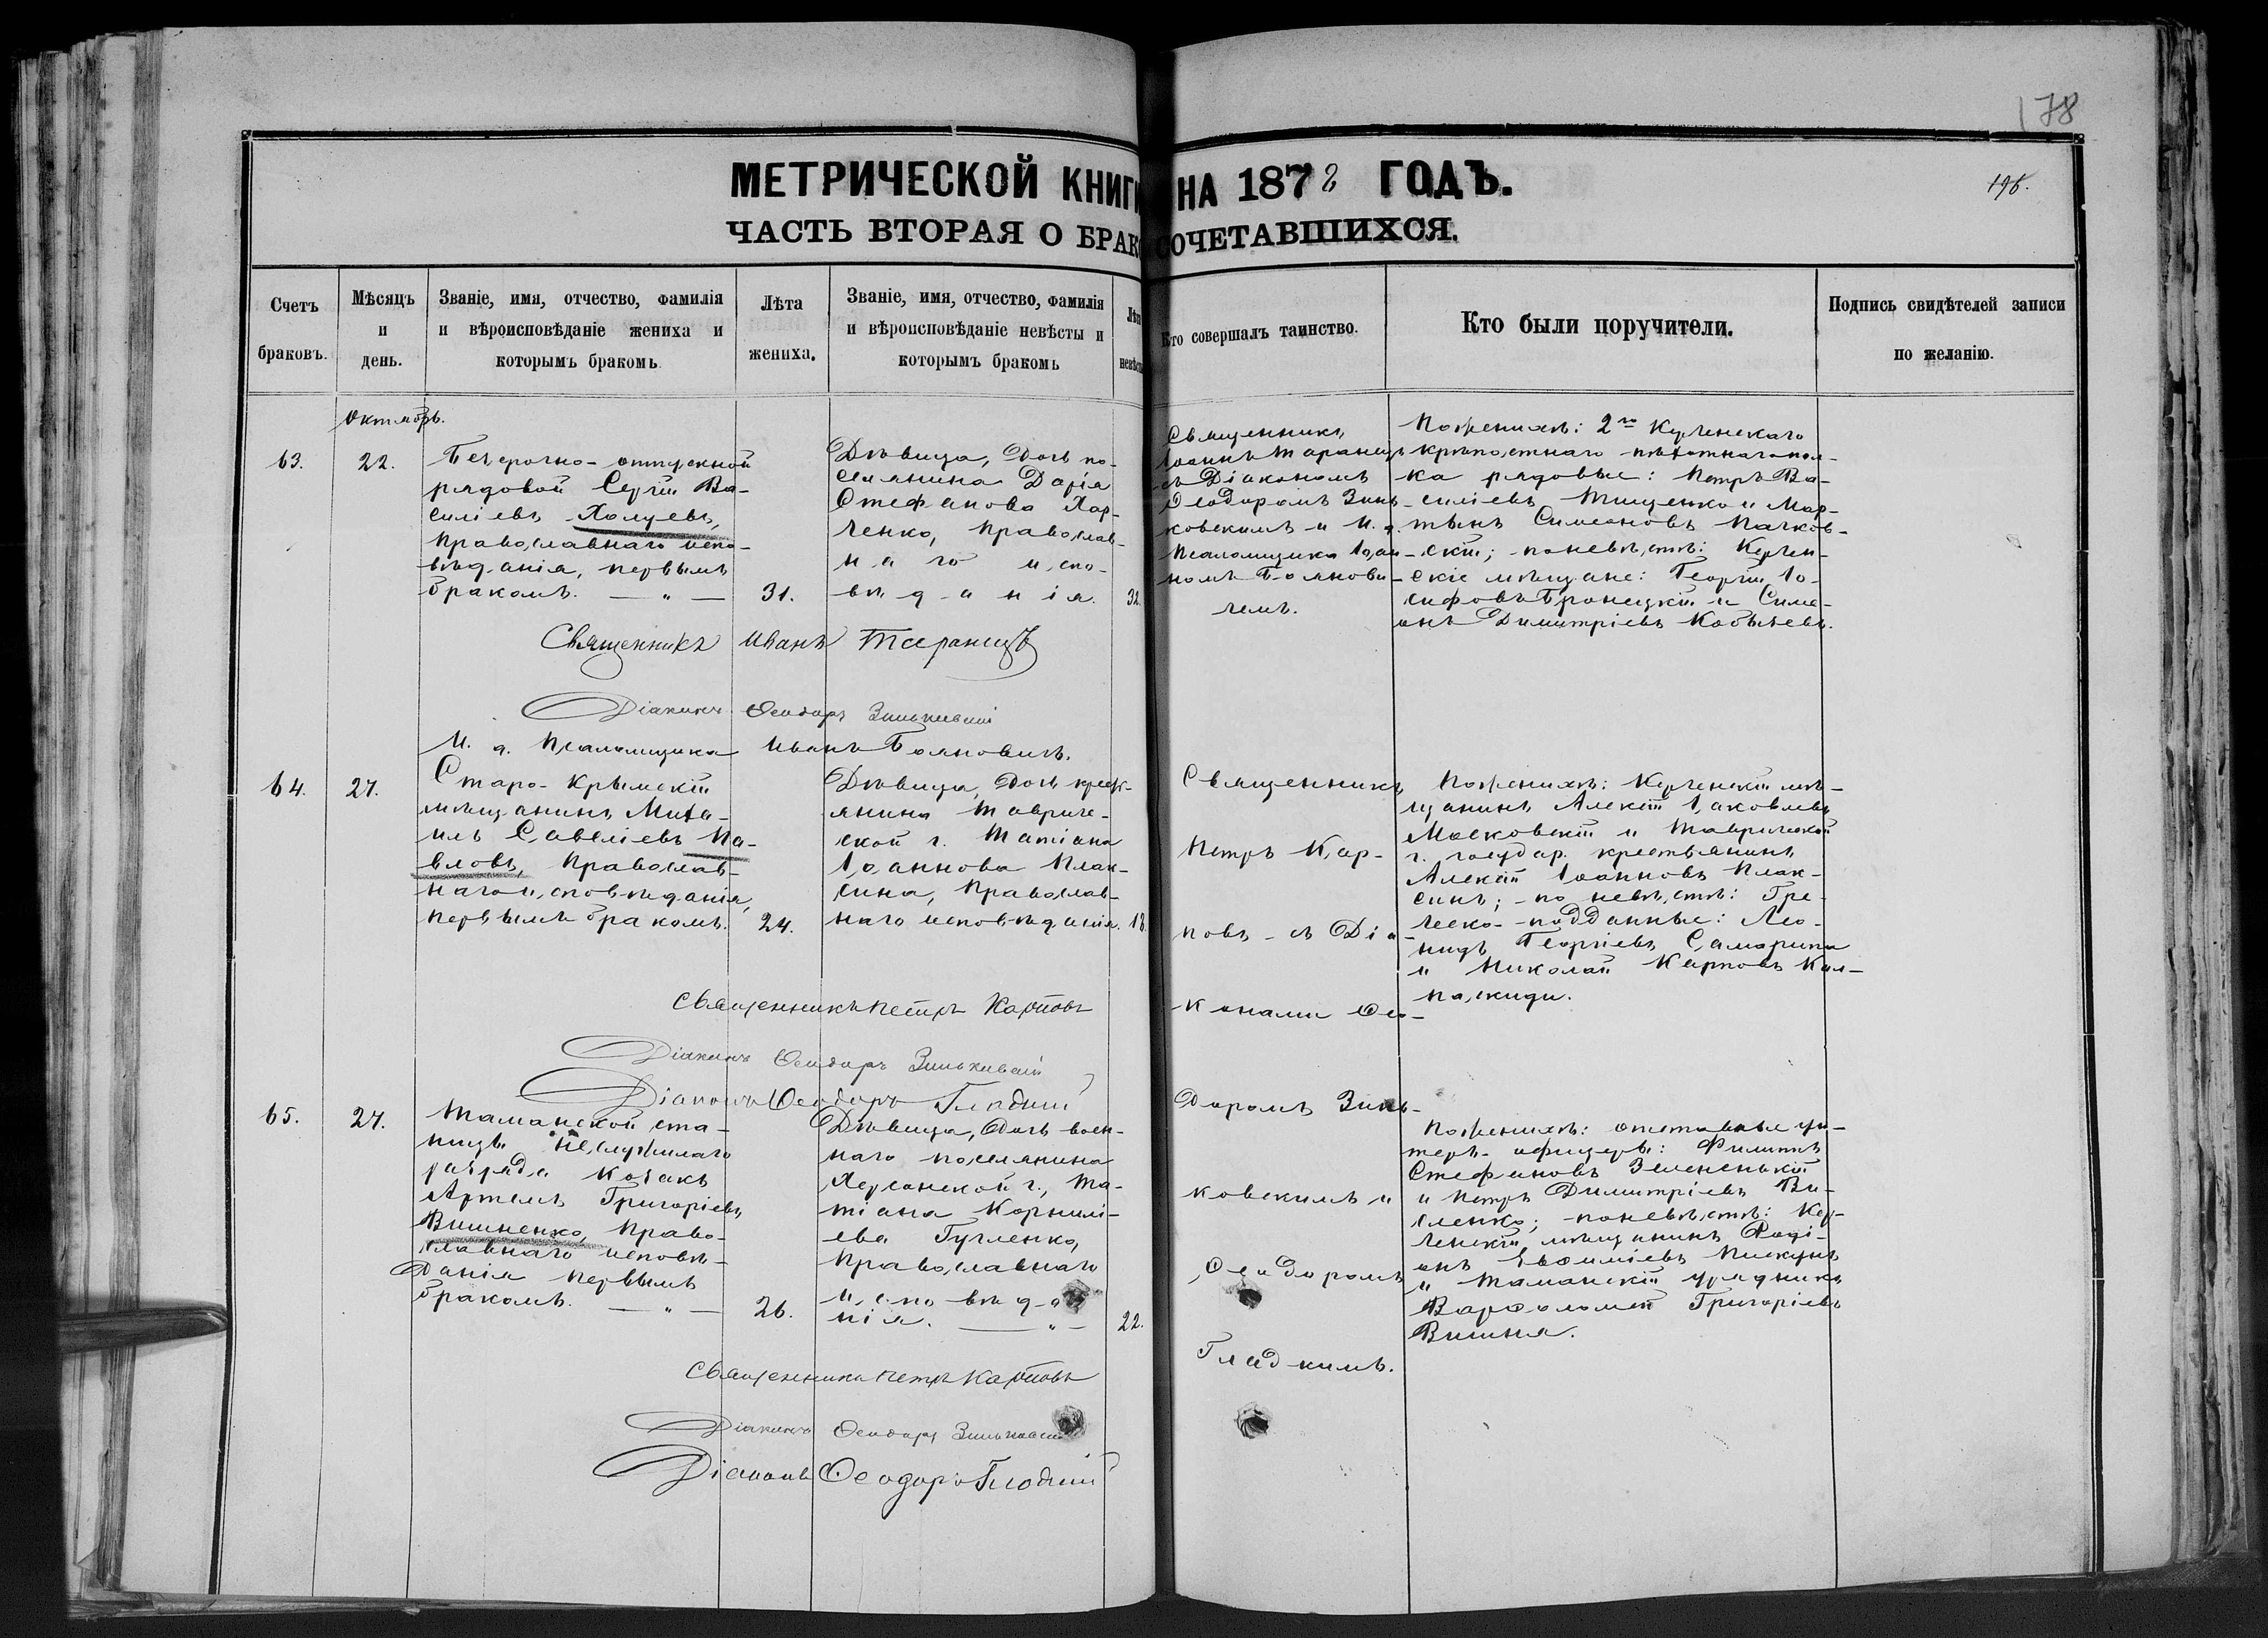 178
МЕТРИЧЕСКОЙ КНИГИ НА 1878 ГОДЪ.
196.
ЧАСТЬ ВТОРАЯ О БРАКОСОЧЕТАВШИХСЯ.
Счетъ браковъ.
Мѣсяцъ и день.
Званіе, имя, отчество, фамилія
и вѣроисповѣданіе жениха и
которымъ бракомъ
Лѣта
жениха.
Званіе, имя, отчество, фамилія
и вѣроисповѣданіе невѣсты и
которымъ бракомъ
Кто совершалъ таинство.
Кто были поручители.
Подпись свидѣтелей записи
по желанію.
Октябрь.
63.
22.
Безсрочно-отпускной
рядовой Сергій Ва-
силіевъ Холуевъ,
православнаго испо-
вѣданія, первымъ
бракомъ. — " —
31.
Дѣвица, дочь по-
селянина Дарія
Стефанова Хар-
ченко, православ-
наго испо-
вѣданія.
32.
Священникъ
Іоаннъ Таранецъ
съ Діакономъ
Ѳеодоромъ Зинь-
ковскимъ и И. д.
псаломщика Іоан-
номъ Бояно­ви-
чемъ.
По женихѣ: 2го Керченскаго
крѣпостнаго пѣхотнаго пол-
ка рядовые: Петръ Ва-
силіевъ Тищенко и Мар-
тынъ Симеоновъ Пачков-
скій; по невѣстѣ: Керчен-
скіе мѣщане: Георгій Іо-
сифовъ Броницкій и Симе-
онъ Димитріевъ Кобызевъ.
Священникъ Иванъ Таранецъ
Діаконъ Ѳеодоръ Зиньковскій
И. д. Псаломщика Иванъ Бояновичъ.
64.
27.
Старо-Крымскій
мѣщанинъ Миха-
илъ Савеліевъ Па-
вловъ, православ-
наго исповѣданія,
первымъ бракомъ.
24.
Дѣвица, дочь крест-
янина Тавриче-
ской г. Татіана
Іоаннова Плак-
сина, православ-
наго исповѣданія.
18.
Священникъ
Петръ Кар-
повъ съ Діа-
конами Ѳео-
доромъ Зинь-
ковскимъ и
Ѳеодоромъ
Гладкимъ.
По женихѣ: Керченскій мѣ-
щанинъ Алексій Іаковлевъ
Московскій и Таврической
г. государ. крестьянинъ
Алексій Іоанновъ Плак-
синъ; по невѣстѣ: Гре-
ческо-подданные: Лео-
нидъ Георгіевъ Саморипа
и Николай Карповъ Кал-
паскиди.
Священникъ Петръ Карповъ
Діаконъ Ѳеодоръ Зиньковскій
Діаконъ Ѳеодоръ Гладкій
65.
27.
Таманской ста-
ницы неслужилаго
разряда козакъ
Артемъ Григоріевъ
Вишненко, право-
славнаго исповѣ-
данія первымъ
бракомъ. — " —
26.
Дѣвица, дочь воен-
наго поселянина
Херсонской г., Та-
тіана Корнилі-
ева Гугленко,
православнаго
исповѣда-
нія. — " —
22.
По женихѣ: отставные ун-
теръ-офицеры: Филиппъ
Стефановъ Зелененькій
и Петръ Димитріевъ Ви-
сленко; по невѣстѣ: Кер-
ченскій мѣщанинъ Родi-
онъ Евѳиміевъ Пискунъ
и Таманскій урядникъ
Варѳоломей Григоріевъ
Вишня.
Священникъ Петръ Карповъ
Діаконъ Ѳеодоръ Зиньковскій
Діаконъ Ѳеодоръ Гладкій